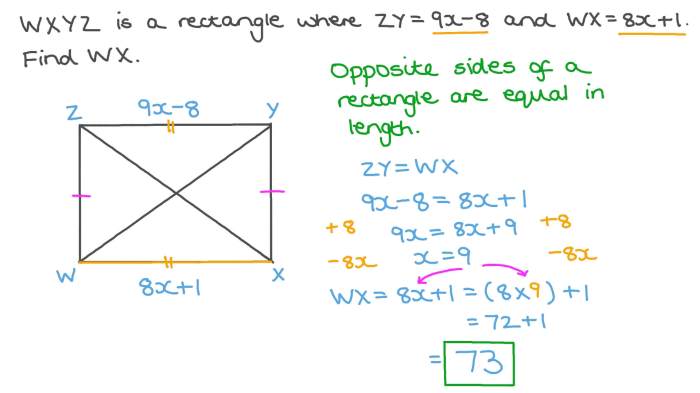 WXYZ is a rectangle where ZY = 9x-8 and WX = 8x+1.
Find WX.
Opposite sides of a
rectangle are equal in
length.
Z 9x-8 Y
W 8x+1 X
ZY = WX
9x-8 = 8x+1
+8 9x = 8x+9 +8
-8x x = 9 -8x
WX = 8x+1 = (8x9) +1
= 72+1
= 73